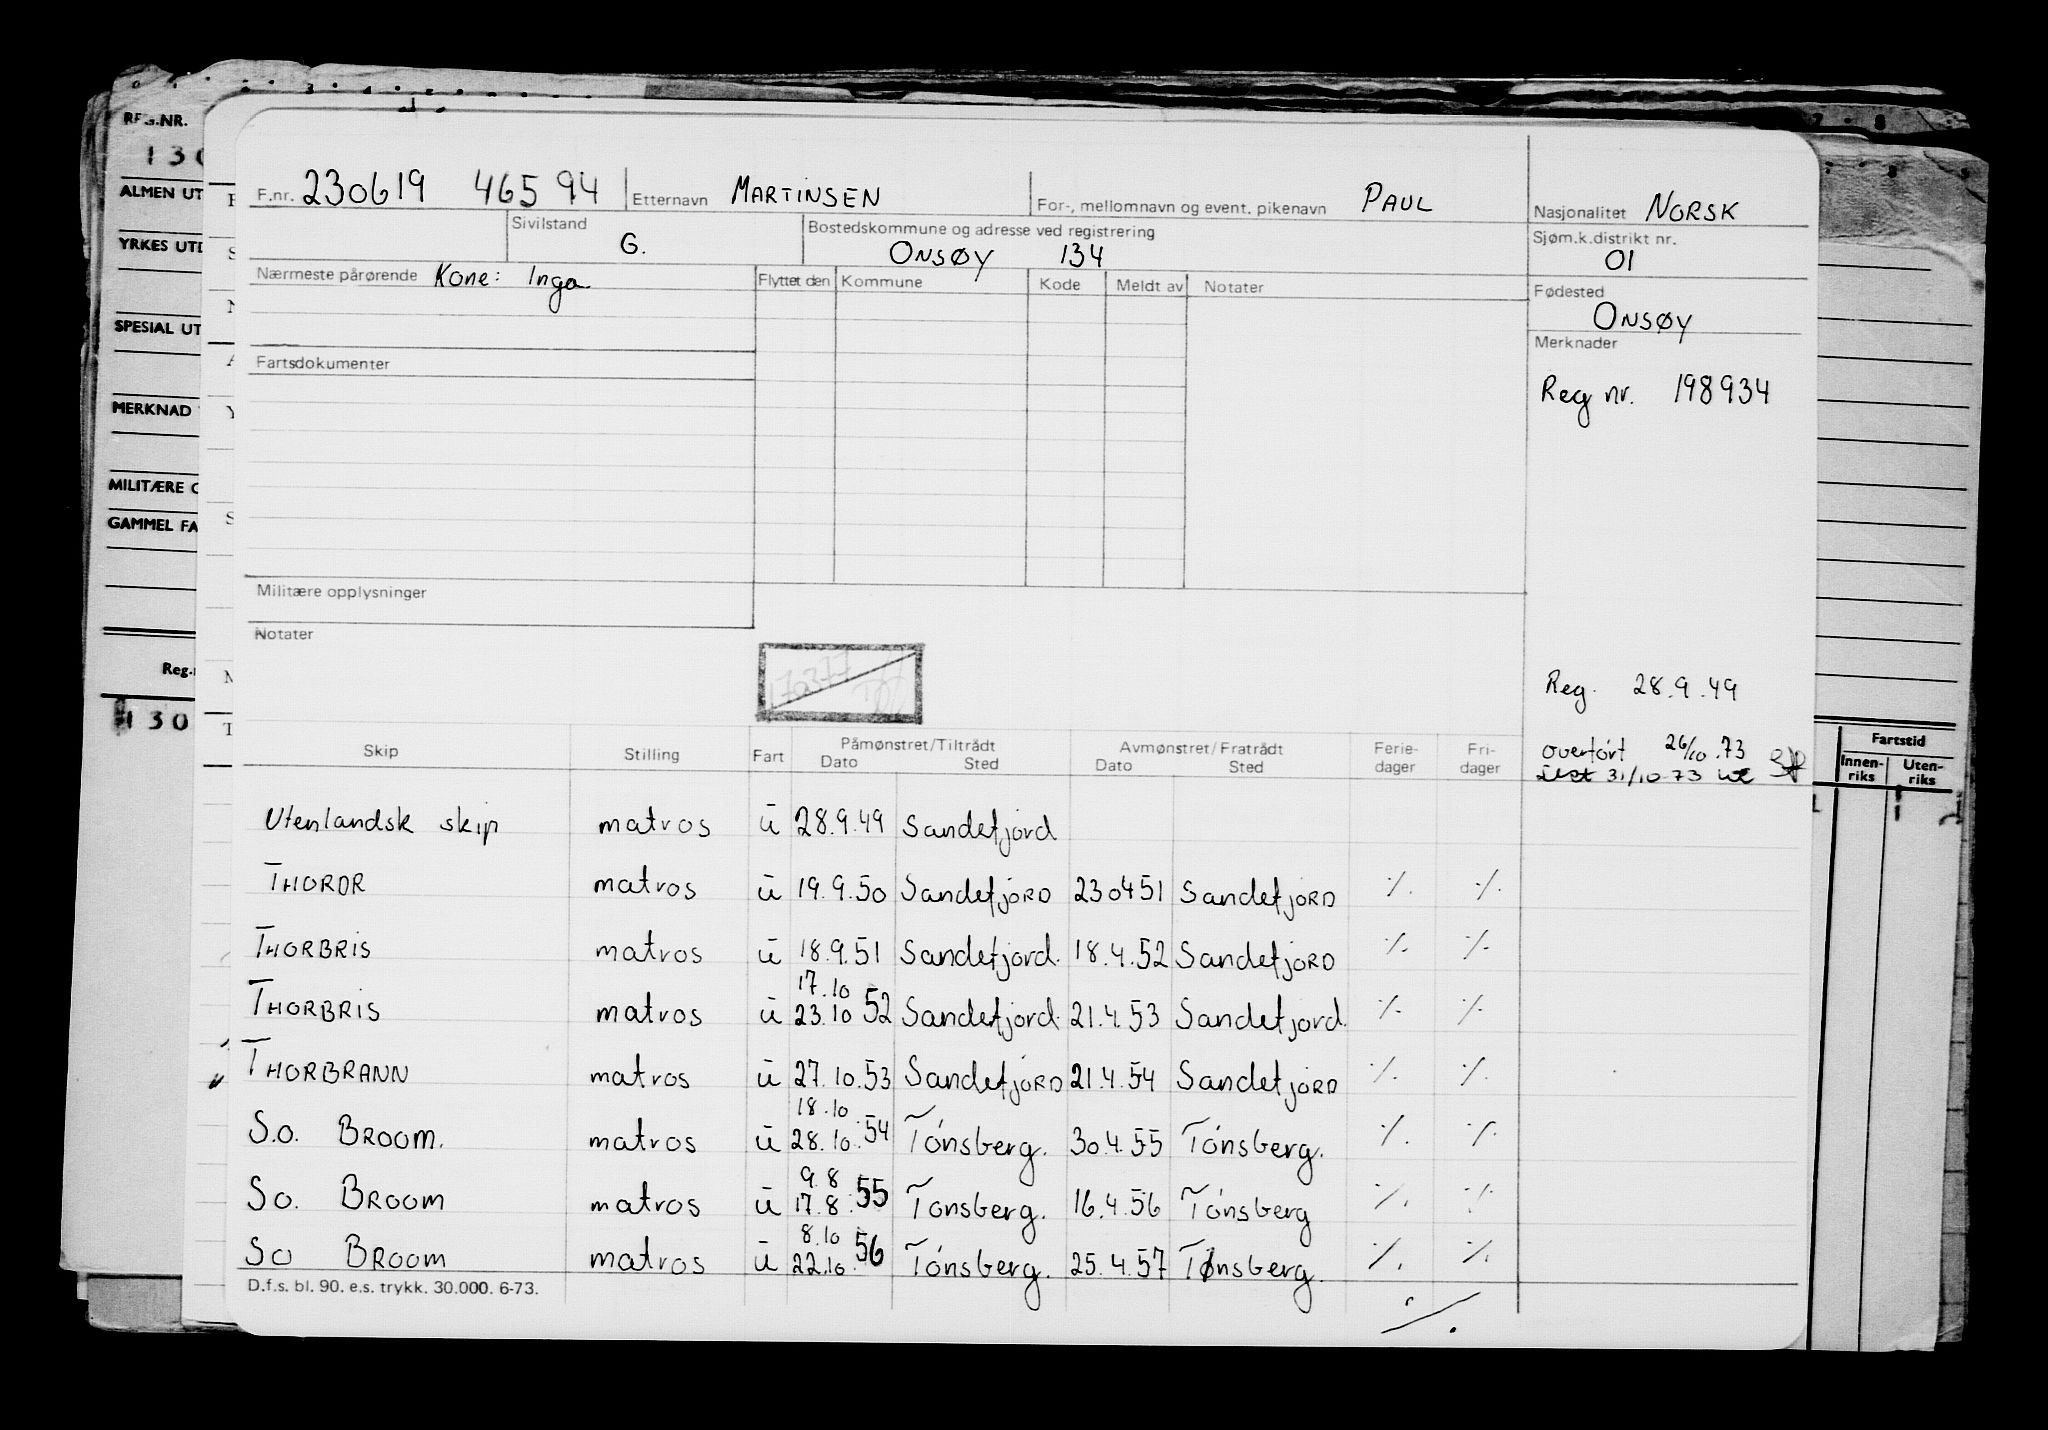 REG.NR.
130
ALMEN UT
YRKES UTD
SPESIAL UT
MERKNAD
MILITÆRE O
GAMMEL FA
Reg.-
130
F.nr. 230619 46594 Etternavn MARTINSEN For-, mellomnavn og event. pikenavn PAUL Nasjonalitet NORSK
Sivilstand G. Bostedskommune og adresse ved registrering ONSØY 134 Sjøm.k.distrikt nr. 01
Nærmeste pårørende Kone: Inga Flyttet den Kommune Kode Meldt av Notater Fødested ONSØY
Merknader
Fartsdokumenter
Reg nr. 198934
Militære opplysninger
Notater
170377
Reg. 28.9.49
overført 26/10.73
31/10-73
Skip Stilling Fart Påmønstret/Tiltrådt Dato Sted Avmønstret/Fratrådt Dato Sted Ferie-dager Fri-dager
Fartstid
Innen-riks Uten-riks
Utenlandsk skip matros ū 28.9.49 Sandefjord
THORDR matros ū 19.9.50 SandefjORD 230451 SandefjORD ./. ./.
THORBRIS matros ū 18.9.51 Sandefjord. 18.4.52 SandefjORD ./. ./.
17.10
THORBRIS matros ū 23.10 52 Sandefjord. 21.4.53 Sandefjord. ./. ./.
THORBRANN matros ū 27.10.53 SandefjORD 21.4.54 SandefjORD ./. ./.
18.10
S.O. BROOM. matros ū 28.10.54 Tónsberg. 30.4.55 Tónsberg. ./. ./.
9.8
SO. BROOM matros ū 17.8.55 Tónsberg. 16.4.56 Tónsberg ./. ./.
8.10
SO BROOM matros ū 22.10.56 Tónsberg. 25.4.57 Tønsberg. ./. ./.
D.f.s. bl. 90. e.s. trykk. 30.000. 6-73.
./.